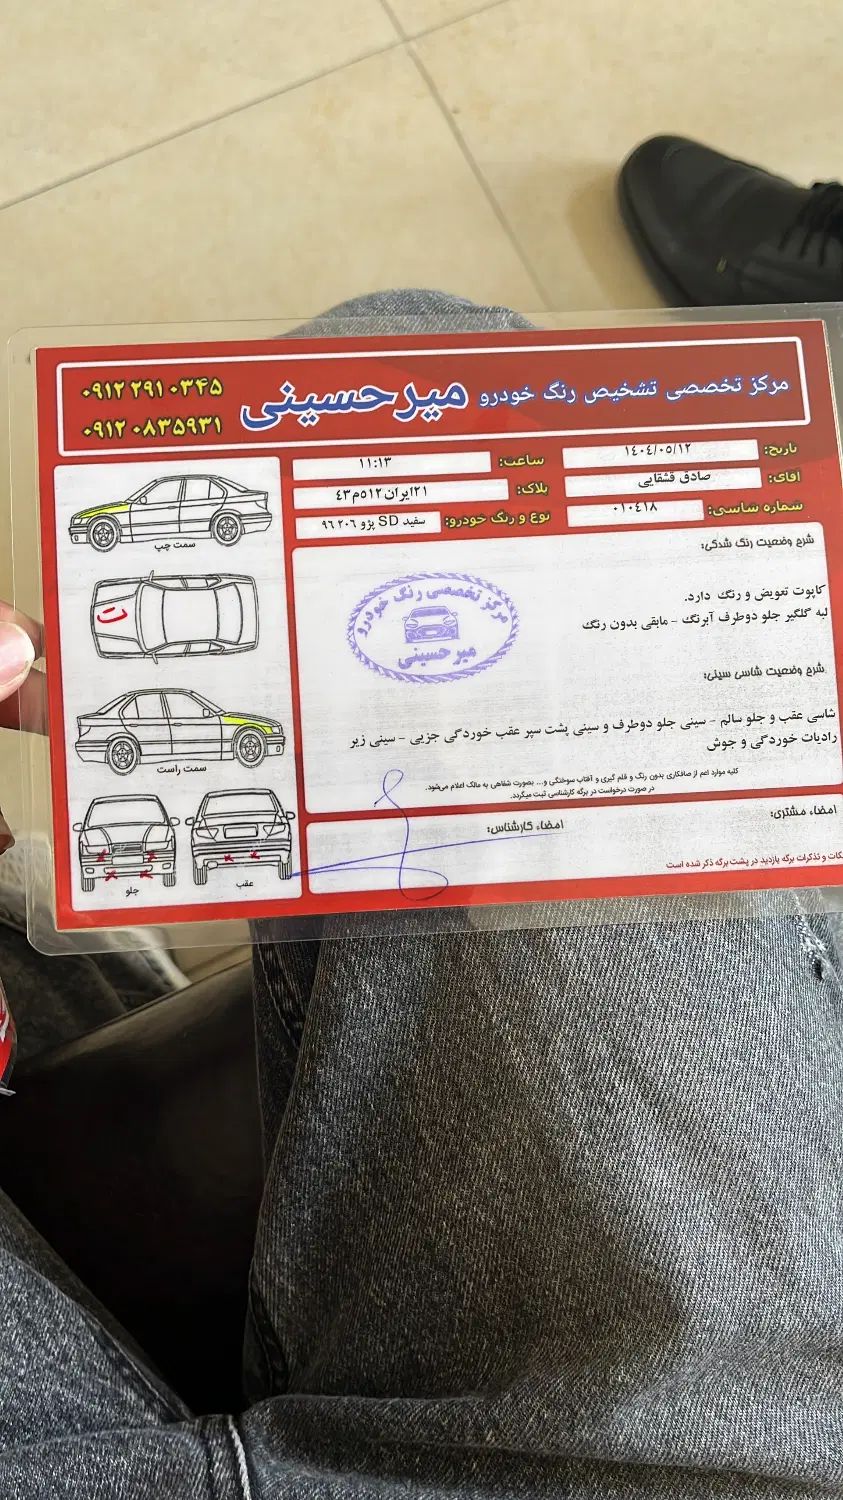 مرکز تخصصی تشخیص رنگ خودرو میرحسینی
۰۹۱۲ ۲۹۱ ۰۳۴۵
۰۹۱۲ ۰۸۳۵۹۳۱
تاریخ: ۱۴۰۴/۰۵/۱۲
ساعت: ۱۱:۱۳
آقای: صادق قشقایی
پلاک: ۲۱ایران۵۱۲م۴۳
شماره شاسی: ۰۱۰۴۱۸
نوع و رنگ خودرو: سفید SD پژو ۲۰۶ ۹۶
شرح وضعیت رنگ شدگی:
کاپوت تعویض و رنگ دارد.
لبه گلگیر جلو دوطرف آبرنگ - مابقی بدون رنگ
مرکز تخصصی رنگ خودرو
میرحسینی
شرح وضعیت شاسی سینی:
شاسی عقب و جلو سالم - سینی جلو دوطرف و سینی پشت سپر عقب خوردگی جزیی - سینی زیر
رادیات خوردگی و جوش
کلیه موارد اعم از صافکاری بدون رنگ و قلم گیری و آفتاب سوختگی و... بصورت شفاهی به مالک اعلام می‌شود.
در صورت درخواست در برگه کارشناسی ثبت میگردد.
امضاء مشتری:
امضاء کارشناس:
نکات و تذکرات برگه بازدید در پشت برگه ذکر شده است
سمت چپ
ت
سمت راست
جلو
عقب